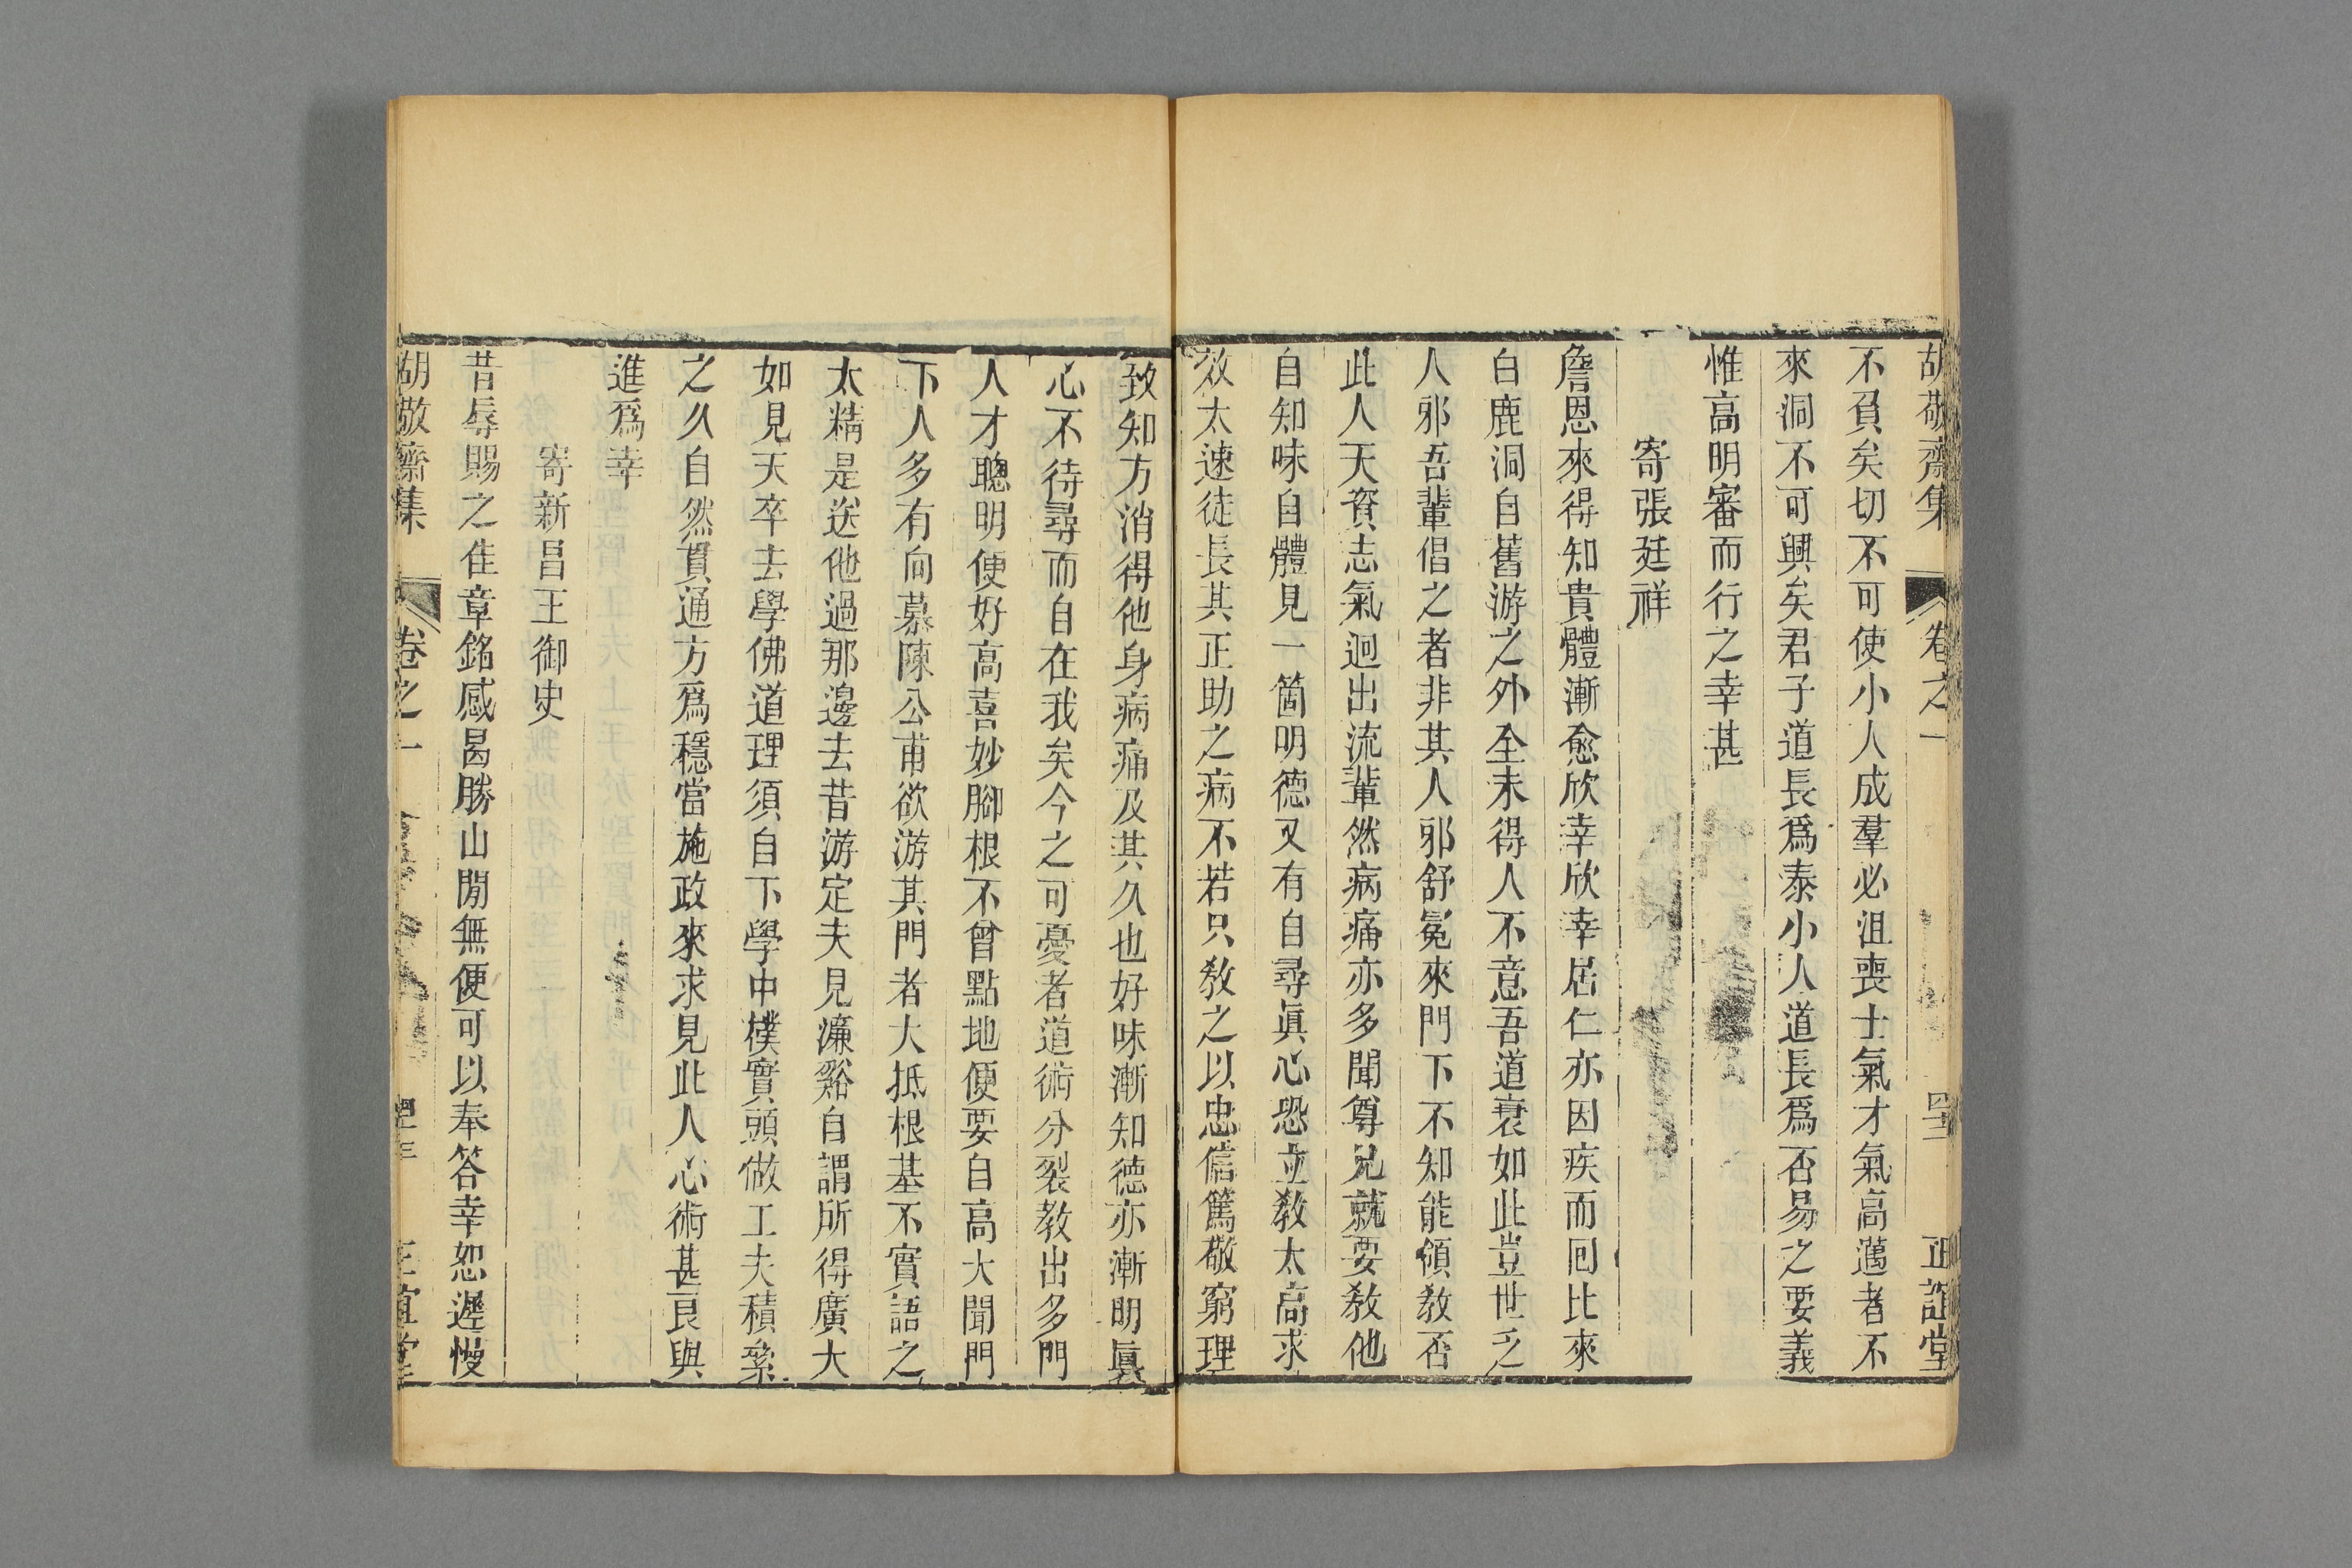 胡敬齋集 卷之一 正誼堂
不負矣切不可使小人成羣必沮喪士氣才氣高邁者不
來洞不可興矣君子道長爲泰小人道長爲否易之要義
惟高明審而行之幸甚
寄張廷祥
詹恩來得知貴體漸愈欣幸欣幸居仁亦因疾而囘比來
白鹿洞自舊游之外全未得人不意吾道衰如此豈世乏
人邪吾輩倡之者非其人邪舒冕來門下不知能領敎否
此人天資志氣迥出流輩然病痛亦多聞尊兄就要敎他
自知味自體見一箇明德又有自尋眞心恐立敎太高求
效太速徒長其正助之病不若只敎之以忠信篤敬窮理
致知方消得他身病痛及其久也好味漸知德亦漸明眞
心不待尋而自在我矣今之可憂者道術分裂教出多門
人才聰明便好高喜妙腳根不曾點地便要自高大聞門
下人多有向慕陳公甫欲游其門者大抵根基不實語之
太精是送他過那邊去昔游定夫見濂谿自謂所得廣大
如見天卒去學佛道理須自下學中樸實頭做工夫積絫
之久自然貫通方爲穩當施政來求見此人心術甚良與
進爲幸
寄新昌王御史
昔辱賜之佳章銘感曷勝山閒無便可以奉答幸恕遲慢
胡敬齋集 卷之一 正誼堂